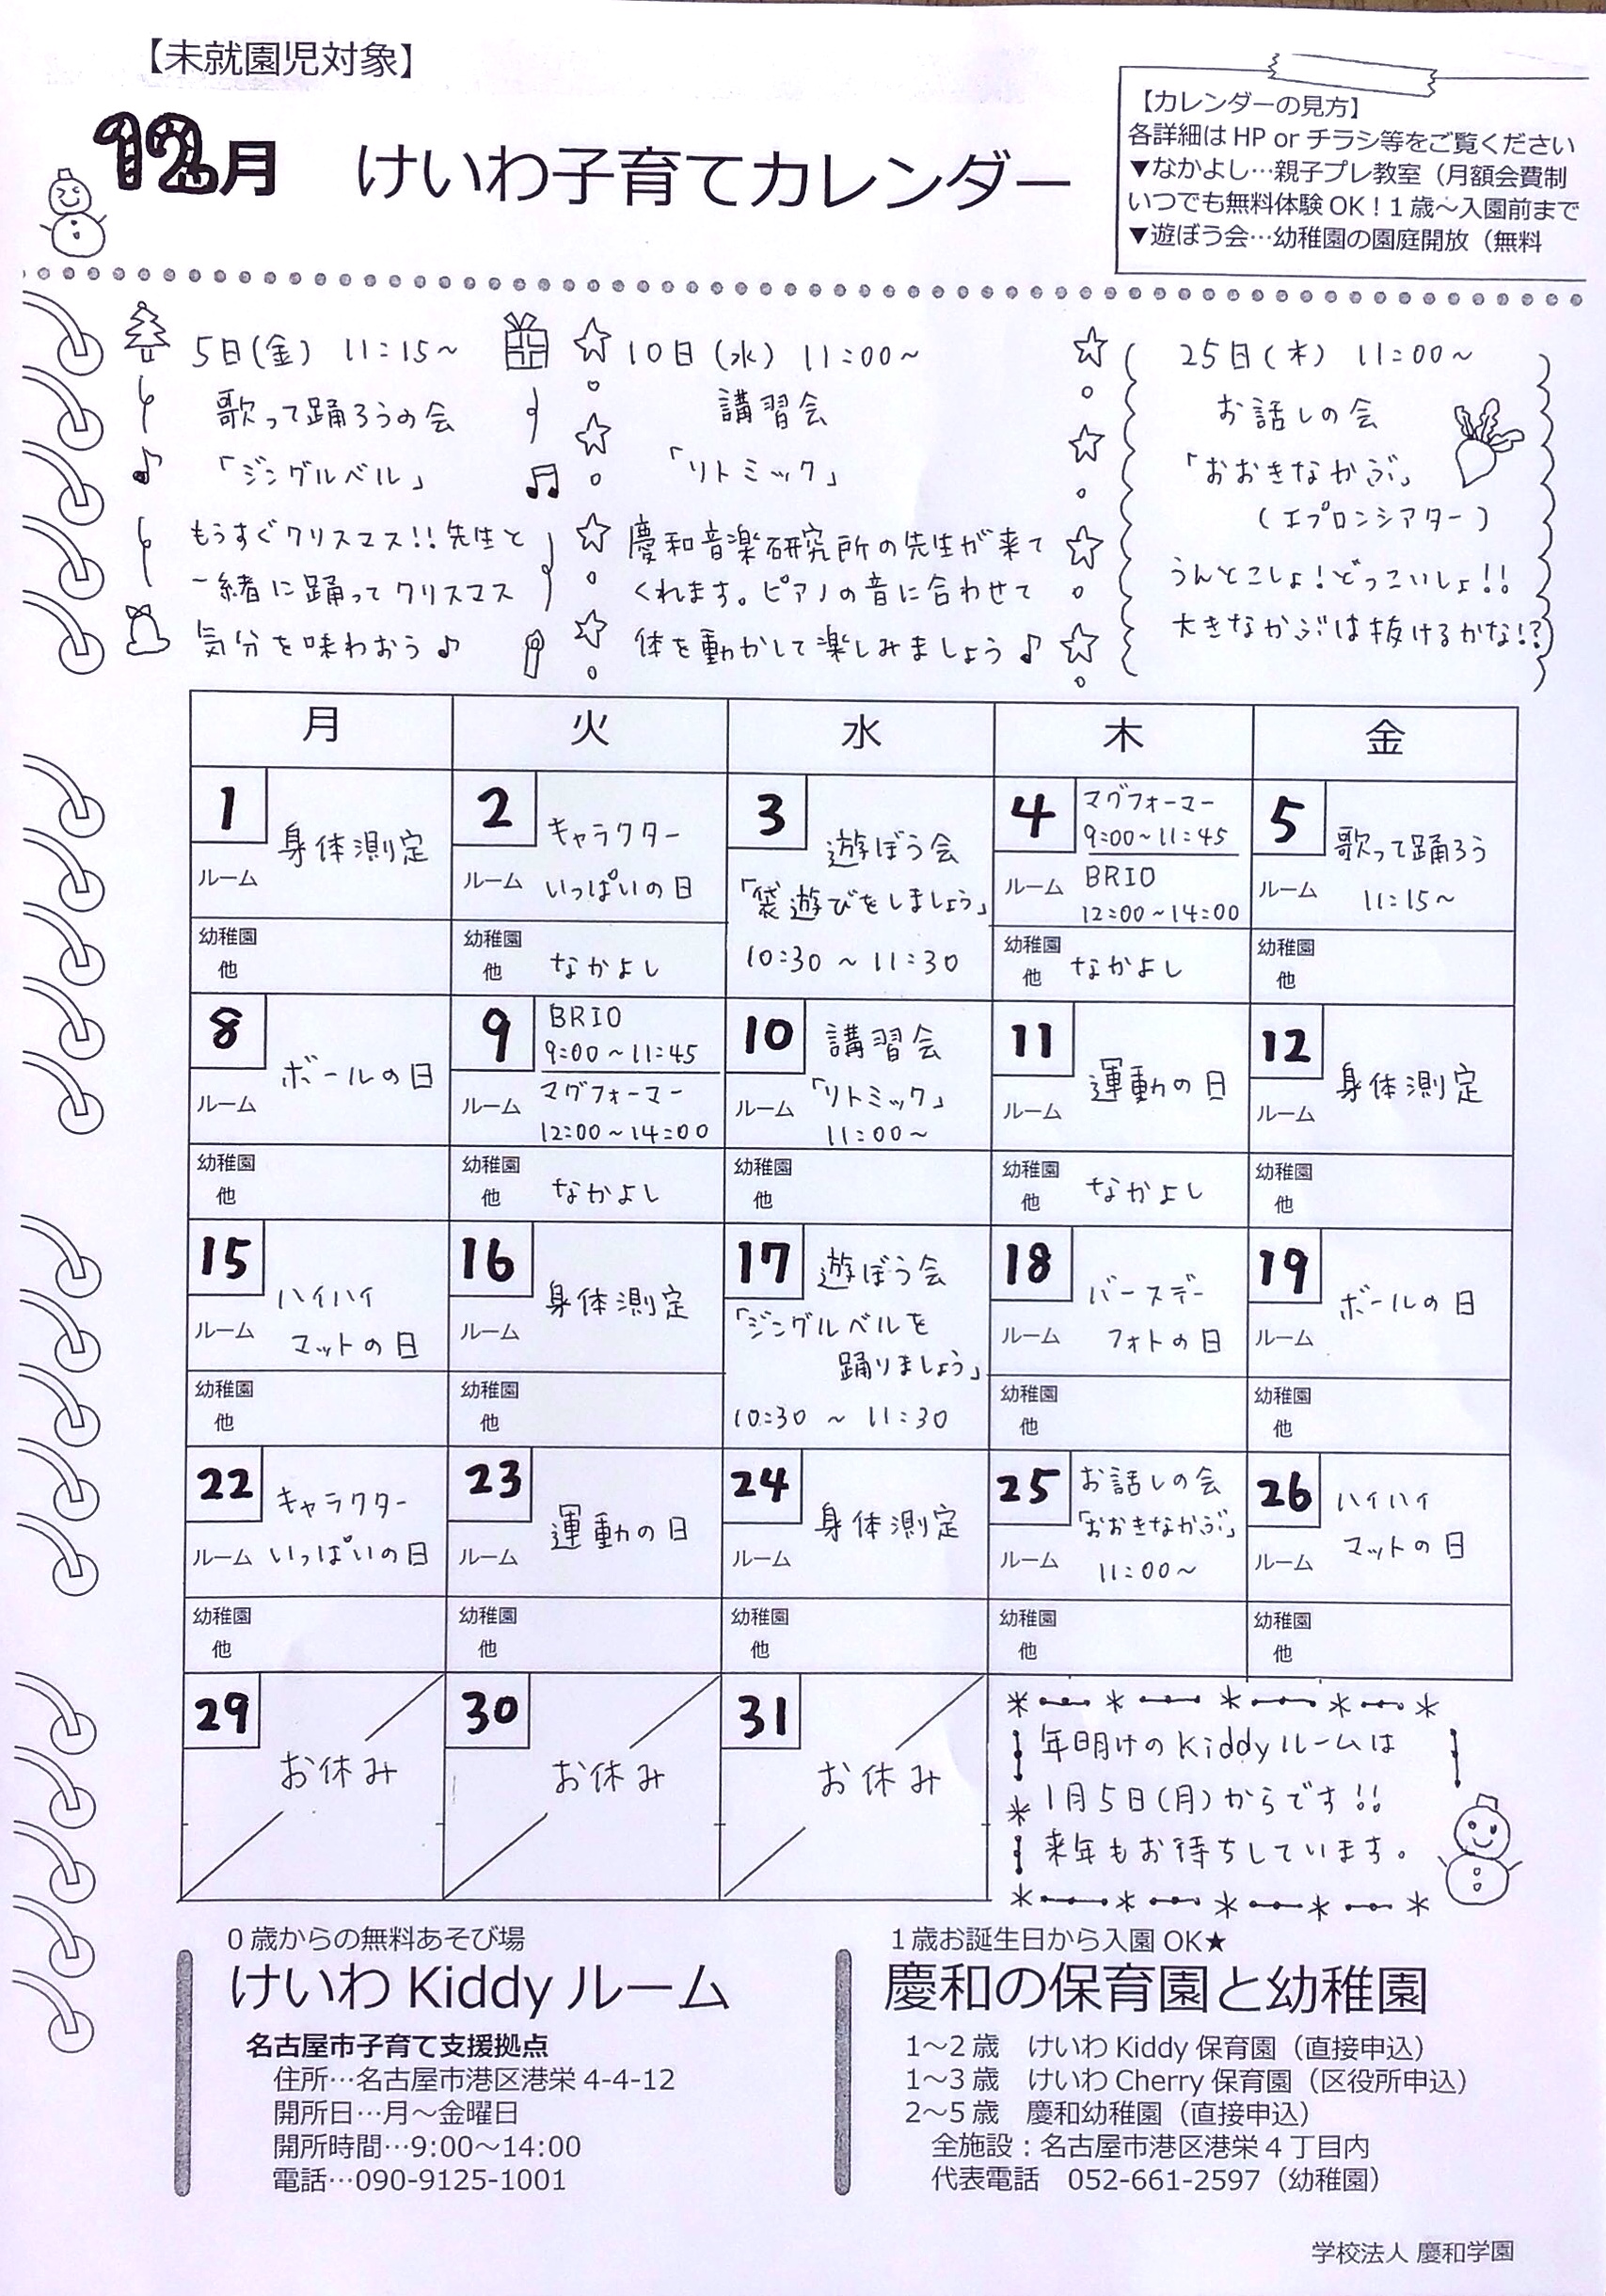 【未就園児対象】
12月 けいわ子育てカレンダー
【カレンダーの見方】
各詳細は HP or チラシ等をご覧ください
▼なかよし…親子プレ教室（月額会費制
いつでも無料体験 OK！1 歳～入園前まで
▼遊ぼう会…幼稚園の園庭開放（無料
5日(金) 11:15~
歌って踊ろうの会
「ジングルベル」
もうすぐクリスマス!!先生と
一緒に踊ってクリスマス
気分を味わおう♪
10日(水) 11:00~
講習会
「リトミック」
慶和音楽研究所の先生が来て
くれます。ピアノの音に合わせて
体を動かして楽しみましょう♪
25日(木) 11:00~
お話しの会
「おおきなかぶ」
(エプロンシアター)
うんとこしょ!どっこいしょ!!
大きなかぶは抜けるかな!?
月 火 水 木 金
1
身体測定
ルーム
幼稚園
他
2
キャラクター
いっぱいの日
ルーム
幼稚園
他 なかよし
3
遊ぼう会
「袋遊びをしましょう」
10:30 ~ 11:30
4
マグフォーマー
9:00~11:45
BRIO
12:00~14:00
ルーム
幼稚園
他 なかよし
5
歌って踊ろう
11:15~
ルーム
幼稚園
他
8
ボールの日
ルーム
幼稚園
他
9
BRIO
9:00~11:45
マグフォーマー
12:00~14:00
ルーム
幼稚園
他 なかよし
10
講習会
「リトミック」
11:00~
ルーム
幼稚園
他
11
運動の日
ルーム
幼稚園
他 なかよし
12
身体測定
ルーム
幼稚園
他
15
ハイハイ
マットの日
ルーム
幼稚園
他
16
身体測定
ルーム
幼稚園
他
17
遊ぼう会
「ジングルベルを
踊りましょう」
10:30 ~ 11:30
18
バースデー
フォトの日
ルーム
幼稚園
他
19
ボールの日
ルーム
幼稚園
他
22
キャラクター
いっぱいの日
ルーム
幼稚園
他
23
運動の日
ルーム
幼稚園
他
24
身体測定
ルーム
幼稚園
他
25
お話しの会
「おおきなかぶ」
11:00~
ルーム
幼稚園
他
26
ハイハイ
マットの日
ルーム
幼稚園
他
29
お休み
30
お休み
31
お休み
年明けのKiddyルームは
1月5日(月)からです!!
来年もお待ちしています。
0 歳からの無料あそび場
けいわ Kiddy ルーム
名古屋市子育て支援拠点
住所…名古屋市港区港栄 4-4-12
開所日…月～金曜日
開所時間…9:00～14:00
電話…090-9125-1001
1 歳お誕生日から入園 OK★
慶和の保育園と幼稚園
1～2 歳 けいわ Kiddy 保育園（直接申込）
1～3 歳 けいわ Cherry 保育園（区役所申込）
2～5 歳 慶和幼稚園（直接申込）
全施設：名古屋市港区港栄 4 丁目内
代表電話 052-661-2597（幼稚園）
学校法人 慶和学園